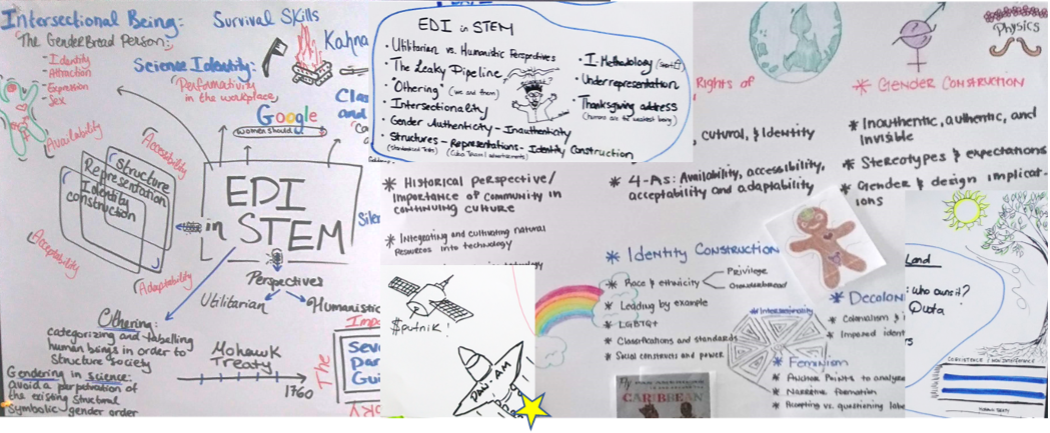 Intersectional Being:
The GenderBread Person:
- Identity
- Attraction
- Expression
- Sex
Survival Skills
Kahna
Science Identity:
Performativity
in the workplace
Google
women should
Clas
and
Availability
Accessibility
Acceptability
Adaptability
Structure
Representation
Identity
construction
EDI
in STEM
Silen
Perspectives
Utilitarian
Humanistic
Othering:
categorizing and labelling
human beings in order to
structure society
Gendering in science:
avoid a perpetration of
the existing structural
symbolic gender order
Mohawk
Treaty
1760
The
Impo
Seve
Par
Gui
EDI in STEM
• Utilitarian vs. Humanistic Perspectives
• The Leaky Pipeline
• "Othering" (we and them)
• Intersectionality
• Gender Authenticity - Inauthenticity
• Structures - Representations - Identity Construction
• I-Methodology
• Underrepresentation
• Thanksgiving address
(humans are the weakest being)
* Historical perspective/
importance of community in
continuing culture
* Integrating and cultivating natural
resources into technology
$putnik!
Pan-AM
Rights of
cultural, & Identity
* 4-As: Availability, accessibility,
acceptability and adaptability
* Identity Construction
* Race & ethnicity
Privilege
* Leading by example
* LGBTQ+
* Classifications and standards
* Social constructs and power
PAN AMERICAN
CARIBBEAN
#Intersectionality
Physics
* GENDER CONSTRUCTION
* Inauthentic, authentic, and
invisible
* Stereotypes & expectations
* Gender & design implicat-
ions
* Decolon
* Colonialism &
* Imposed ident
* Feminism
* Anchor Points to analyze
* Narrative formation
* Accepting vs. questioning labe
Land
: who owns it?
Quota